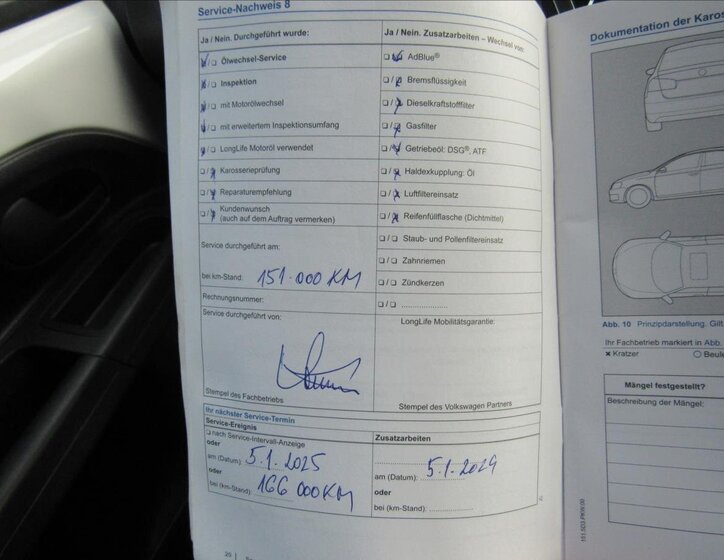 Service-Nachweis 8
Ja / Nein. Durchgeführt wurde:
Ölwechsel-Service
Inspektion
mit Motorölwechsel
mit erweitertem Inspektionsumfang
LongLife Motoröl verwendet
Karosserieprüfung
Reparaturempfehlung
Kundenwunsch
(auch auf dem Auftrag vermerken)
Service durchgeführt am:
bei km-Stand: 151.000 KM
Rechnungsnummer:
Service durchgeführt von:
Stempel des Fachbetriebs
Ja / Nein. Zusatzarbeiten – Wechsel von:
AdBlue®
Bremsflüssigkeit
Dieselkraftstofffilter
Gasfilter
Getriebeöl: DSG®, ATF
Haldexkupplung: Öl
Luftfiltereinsatz
Reifenfüllflasche (Dichtmittel)
Staub- und Pollenfiltereinsatz
Zahnriemen
Zündkerzen
LongLife Mobilitätsgarantie:
Stempel des Volkswagen Partners
Ihr nächster Service-Termin
Service-Ereignis
nach Service-Intervall-Anzeige
oder
am (Datum): 5.1.2025
oder
bei (km-Stand): 166 000KM
Zusatzarbeiten
am (Datum): 5.1.2024
oder
bei (km-Stand):
Dokumentation der Karos
Abb. 10 Prinzipdarstellung. Gilt
Ihr Fachbetrieb markiert in Abb.
× Kratzer
Beule
Mängel festgestellt?
Beschreibung der Mängel: